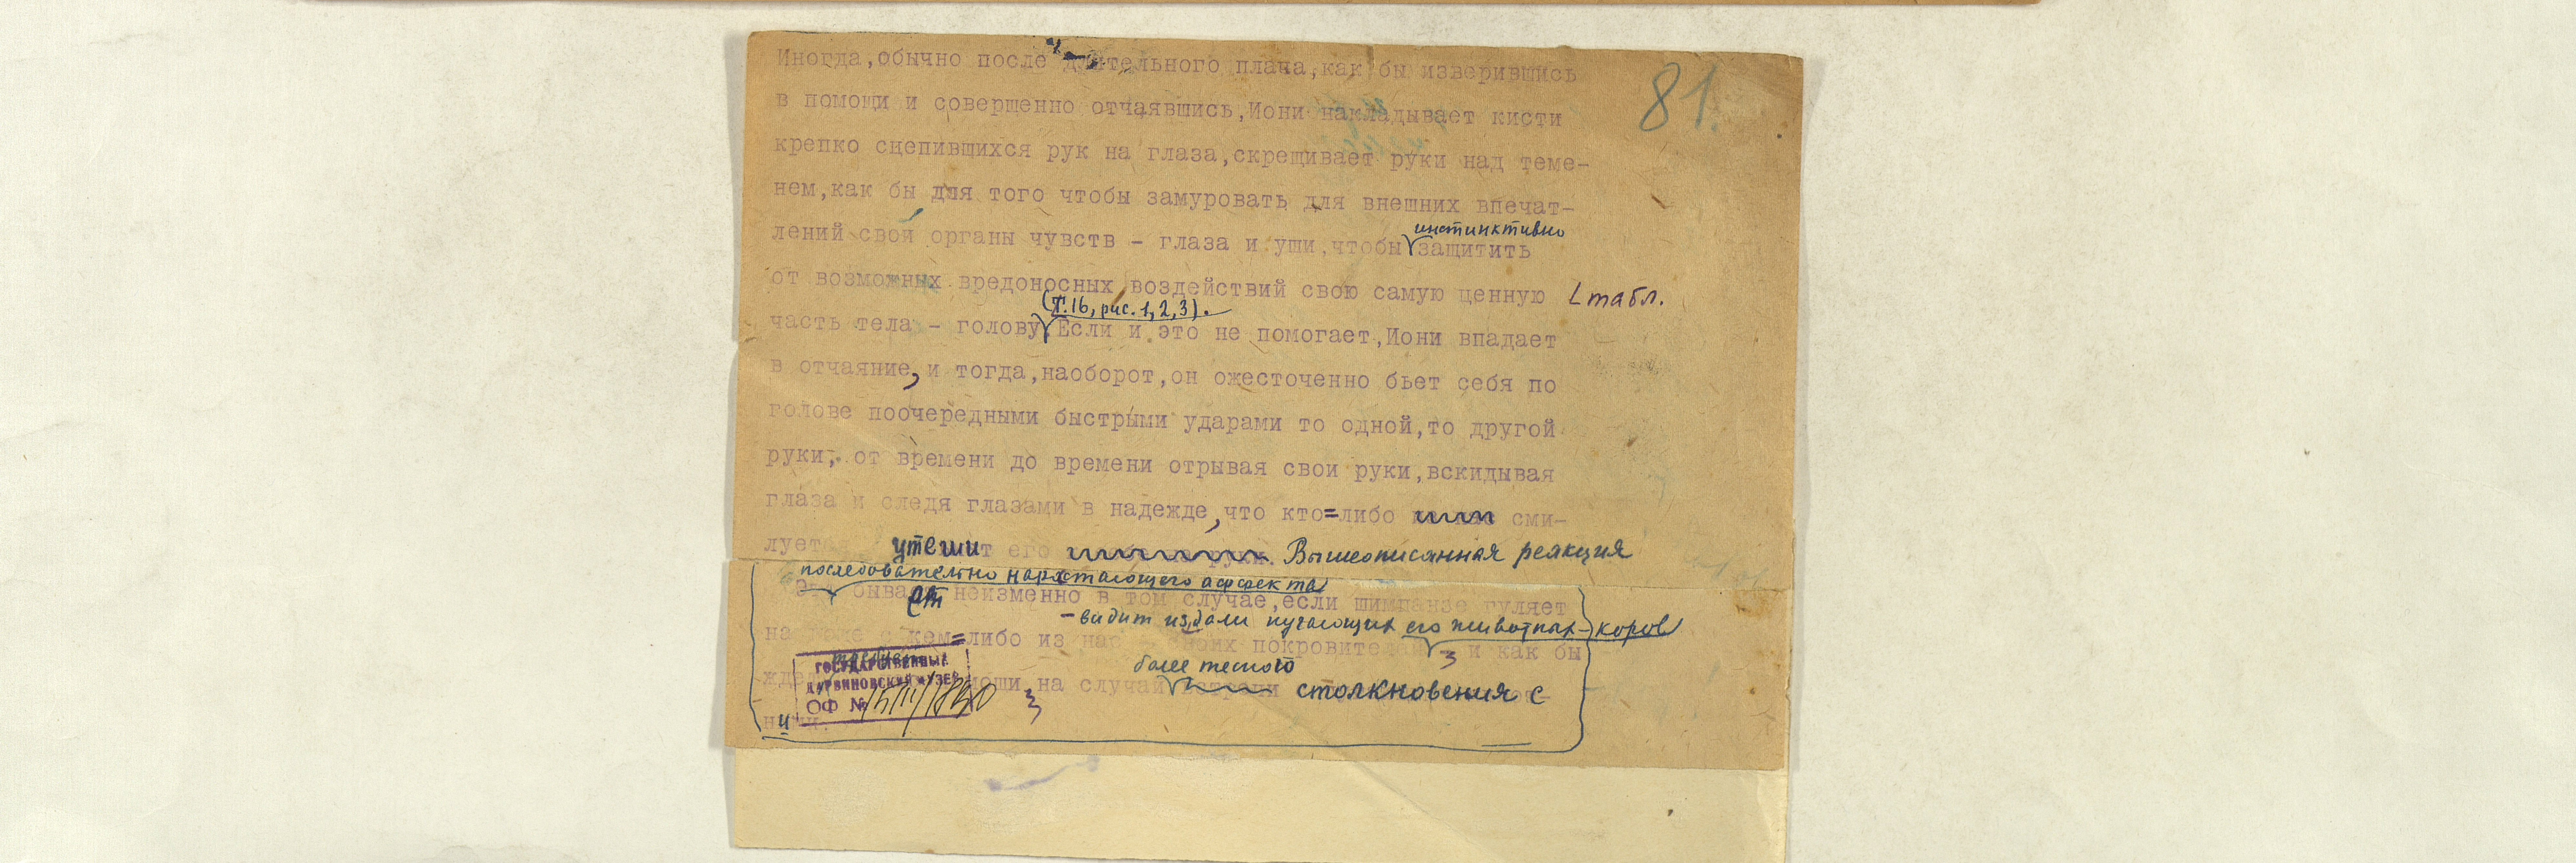 81.
Иногда,обычно после длительного плача,как бы изверившись
в помощи и совершенно отчаявшись,Иони накладывает кисти
крепко сцепившихся рук на глаза,скрещивает руки над теме-
нем,как бы для того чтобы замуровать для внешних впечат-
лений свои органы чувств - глаза и уши,чтобы
инстинктивно
защитить
от возможных вредоносных воздействий свою самую ценную
табл.
(Т.16, рис. 1, 2, 3).
часть тела - голову Если и это не помогает,Иони впадает
в отчаяние, и тогда,наоборот,он ожесточенно бьет себя по
голове поочередными быстрыми ударами то одной,то другой
руки, от времени до времени отрывая свои руки,вскидывая
глаза и следя глазами в надежде, что кто=либо сми-
утеши т его Вышеописанная реакция
последовательно нарастающего аффекта
бывает неизменно в том случае,если шимпанзе гуляет
- видит издали пугающих его животных - коров
кем=либо из нас покровителей и как бы
более тесного
на случай столкновения с
ГОСУДАРСТВЕННЫЙ
ДАРВИНОВСКИЙ МУЗЕЙ
ОФ №